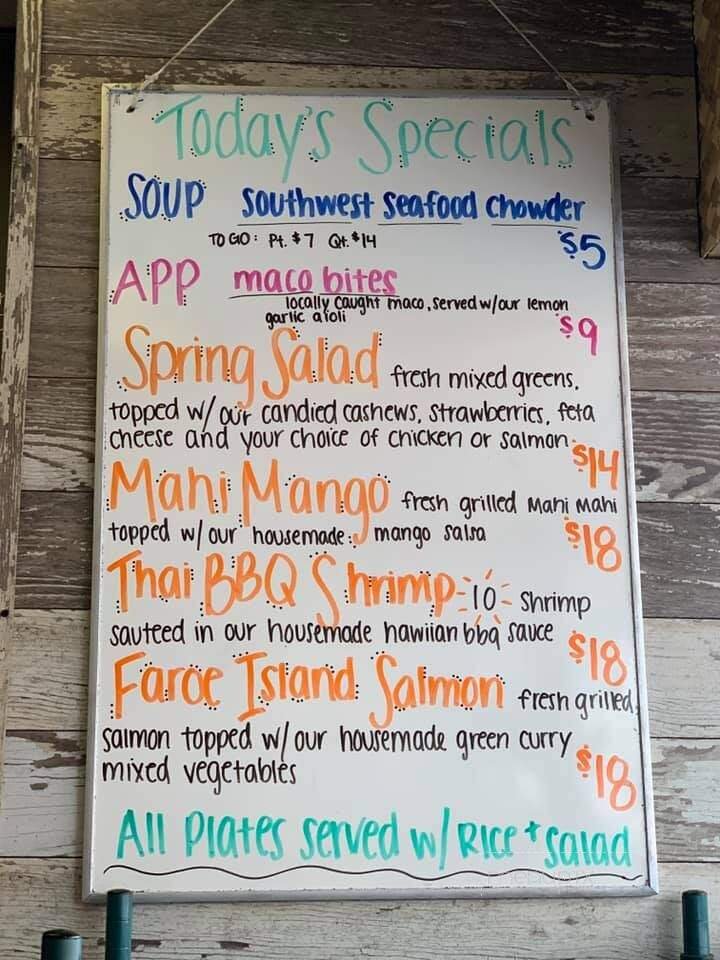 Today's Specials
SOUP Southwest Seafood Chowder
TO GO: Pt. $7 Qt. $14 $5
APP maco bites
locally caught maco, served w/our lemon
garlic aioli $9
Spring Salad fresh mixed greens,
topped w/our candied cashews, strawberries, feta
cheese and your choice of chicken or salmon.
$14
Mahi Mango fresh grilled Mahi Mahi
topped w/our housemade mango salsa $18
Thai BBQ Shrimp - 10 - shrimp
sauteed in our housemade hawiian bbq sauce $18
Faroe Island Salmon fresh grilled
salmon topped w/our housemade green curry
mixed vegetables $18
All Plates served w/ Rice + Salad